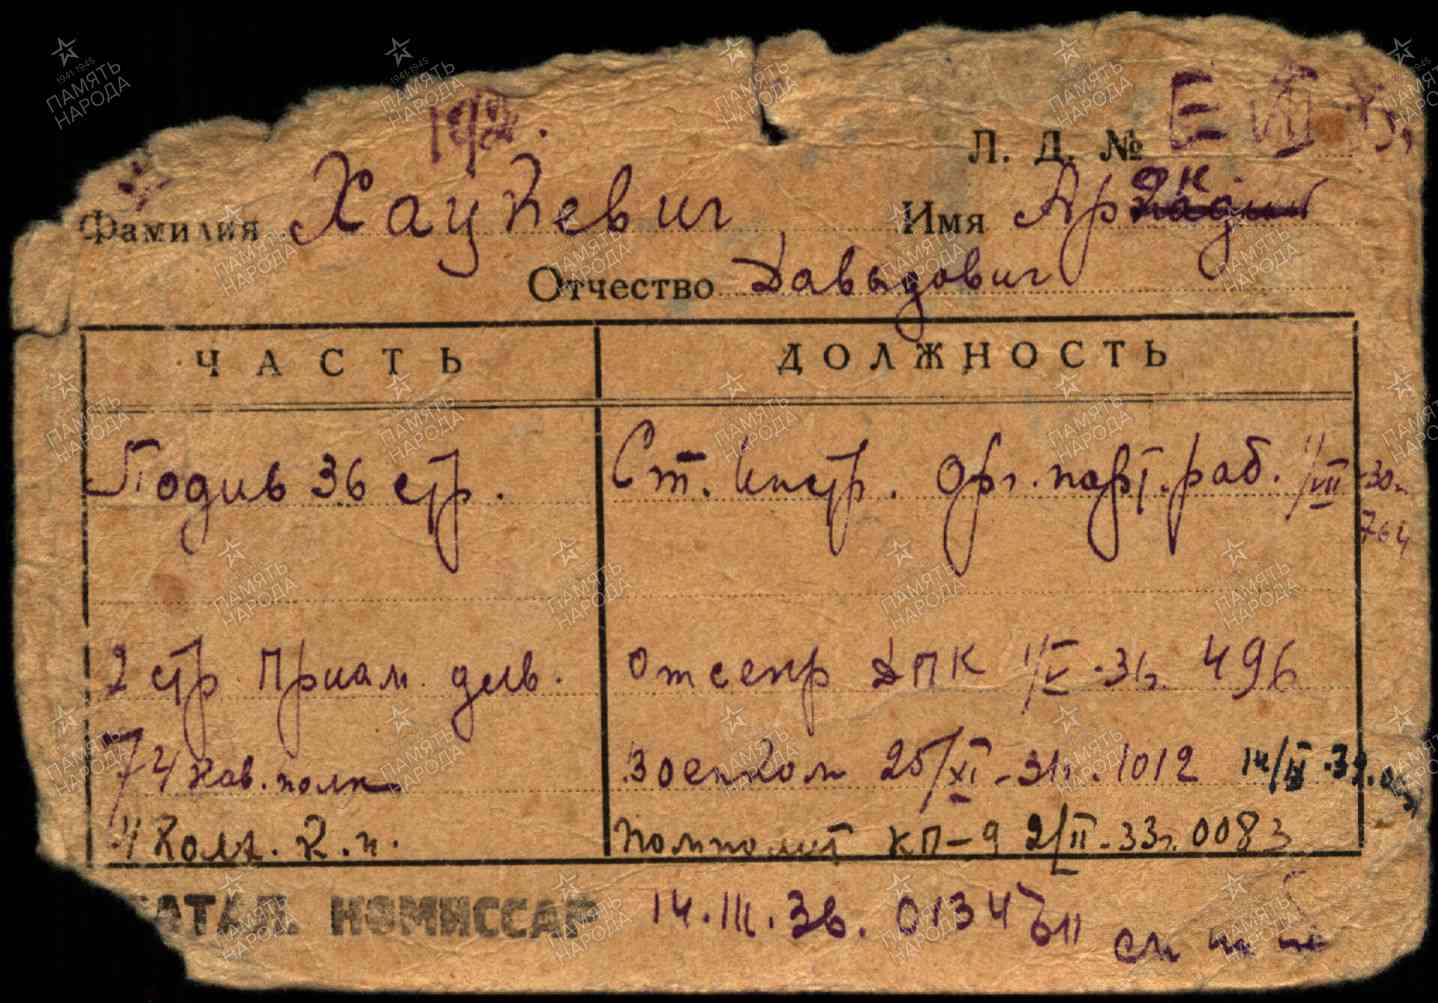 192
Л. Д. №
Фамилия Хацкевич Имя Ар
Отчество Давыдович
ЧАСТЬ ДОЛЖНОСТЬ
Подив 36 стр. Ст. Инстр. орг. парт. раб. 1/VII-30г.
764
2 стр Приам. див. Отсекр ДПК 1/V-31г. 496
74 Кав. полк Военком 25/XI-31г. 1012
4 Колх. К. п. Помполит КП-9 2/II-33г. 0083
БАТАЛ. КОМИССАР 14.III.36. 0134